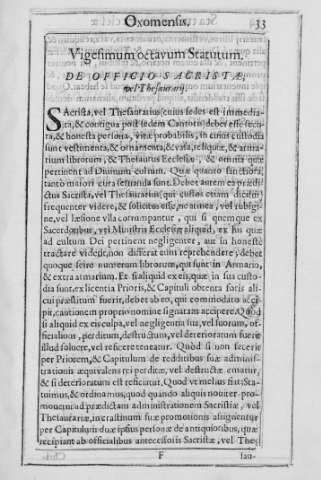 Oxomensis. 33
Vigesimum octavum Statutum.
DE OFFICIO SACRISTÆ,
vel Thesaurarij.
SAcrista, vel Thesaurarius (cuius sedes est immedia-
ta, & contigua post sedem Cantoris) debet esse
ta, & honesta persona, vitæ probabilis, in cuius custodia
sunt vestimenta, & ornamenta, & vasa, reliquiæ, & arma-
rium librorum, & Thesaurus Ecclesiæ, & omnia quæ
pertinent ad Diuinum cultum. Quæ quanto sanctiora,
tanto maiori cura seruanda sunt. Debet autem ex prædi-
ctus Sacrista, vel Thesaurarius (qui custos etiam dicitur)
frequenter videre, & solicitus esse, ne tinea, vel rubigi-
ne, vel læsione vlla corrumpantur, qui si quemque ex
Sacerdotibus, vel Ministris Ecclesiæ aliquid, ex his quæ
ad cultum Dei pertinent negligenter, aut in honestè
tractare videjit, non differat eum reprehendere; debet
quoque scire numerum librorum, qui sunt in Armario,
& extra armarium. Et si aliquid ex eis, quæ in sua custo-
dia sunt, ex licentia Prioris, & Capituli obtenta foris ali-
cui præstitum fuerit, debet ab eo, qui commodato acci-
pit, cautionem proprio nomine signatam accipere. Quod
si aliquid ex eis culpa, vel negligentia sua, vel suorum, of-
ficialium, perditum, destructum, vel deterioratum fuerit
illud soluere, vel reficere teneatur. Quod si non fecerit
per Priorem, & Capitulum de redditibus suæ adminis-
trationis æquivalens rei perditæ, vel destructæ ematur,
& si deterioratum est reficiatur. Quod vt melius fiat: Sta-
tuimus, & ordinamus, quod quando aliquis nouiter pro-
mouetur ad prædictam administrationem Sacristiæ, vel
Thesaurariæ, in crastinum suæ promotionis assignentur
per Capitulum duæ ipsius personæ de antiquioribus, quæ
recipiant ab officialibus antecessoris Sacristæ, vel The-
F sau-